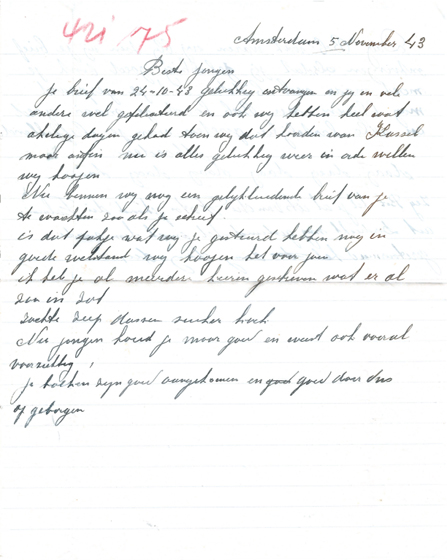 421 75
Amsterdam 5 November 43
Beste jongen
Je brief van 24-10-43 gelukkig ontvangen en jy en vele
andere wel gefeliciteerd en ook wy hebben heel wat
akelige dagen gehad toen wy dat hoorden van Kassel
maar enfin nu is alles gelukkig weer in orde willen
wy hoopen
Nu bennen wy nog een gelykluidende brief van je
te wachten zoo als je schreef
is dat pakje wat wy je gestuurd hebben nog in
goede welstand wy hoopen het voor jou
ik heb je al meerdere keeren geschreven wat er al
zoo in zat
zachte zeep dassen suiker koek
Nu jongen houd je maar goed en weest ook vooral
voorzichtig!
je boeken zyn goed aangekomen en goed door ons
op geborgen